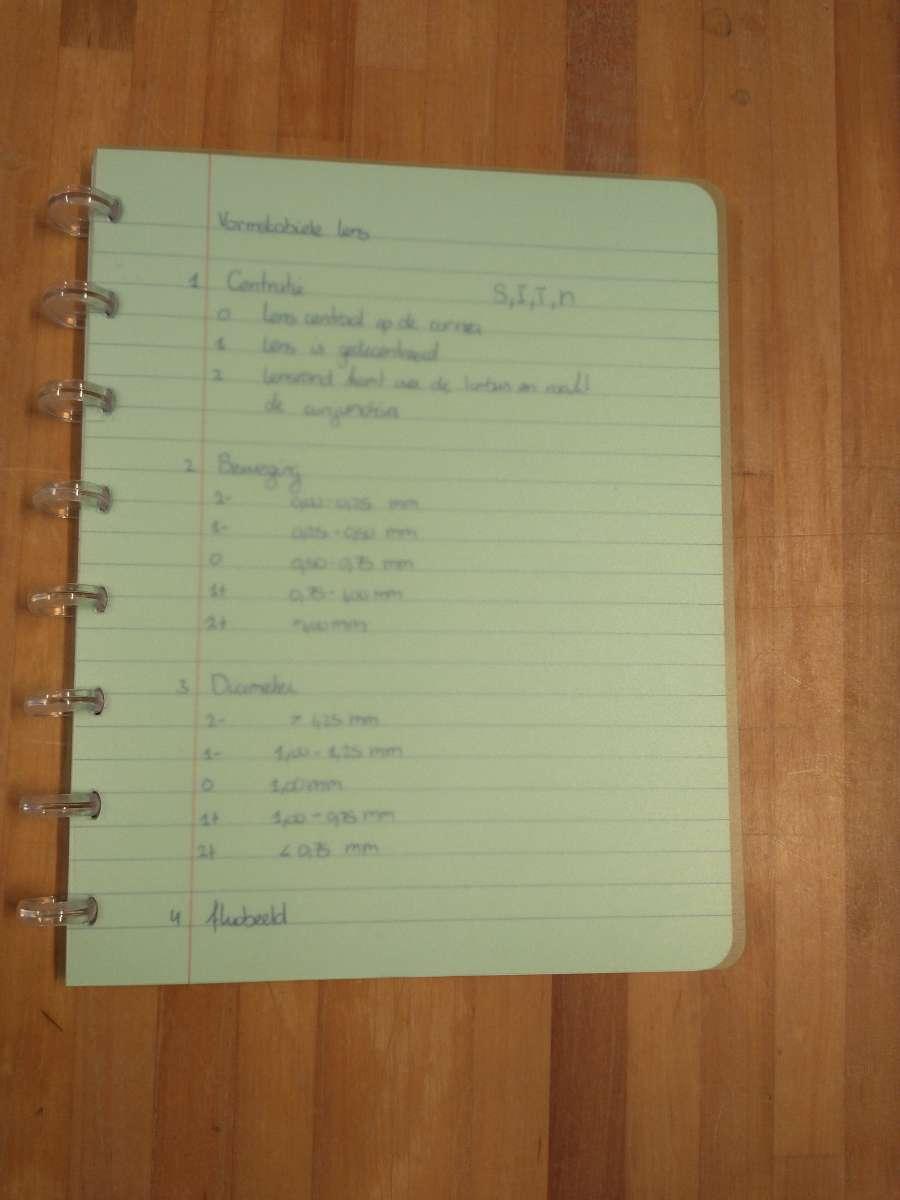 Vormstabiele lens
1 Centratie S, I, T, n
0 Lens centraal op de cornea
1 Lens is gedecentreerd
2 Lensrand komt over de limbus en raakt
de conjunctiva
2 Beweging
2- 0,00-0,25 mm
1- 0,25-0,50 mm
0 0,50-0,75 mm
1+ 0,75-1,00 mm
2+ >1,00 mm
3 Diameter
2- > 1,25 mm
1- 1,00-1,25 mm
0 1,00 mm
1+ 1,00-0,75 mm
2+ < 0,75 mm
4 fluobeeld